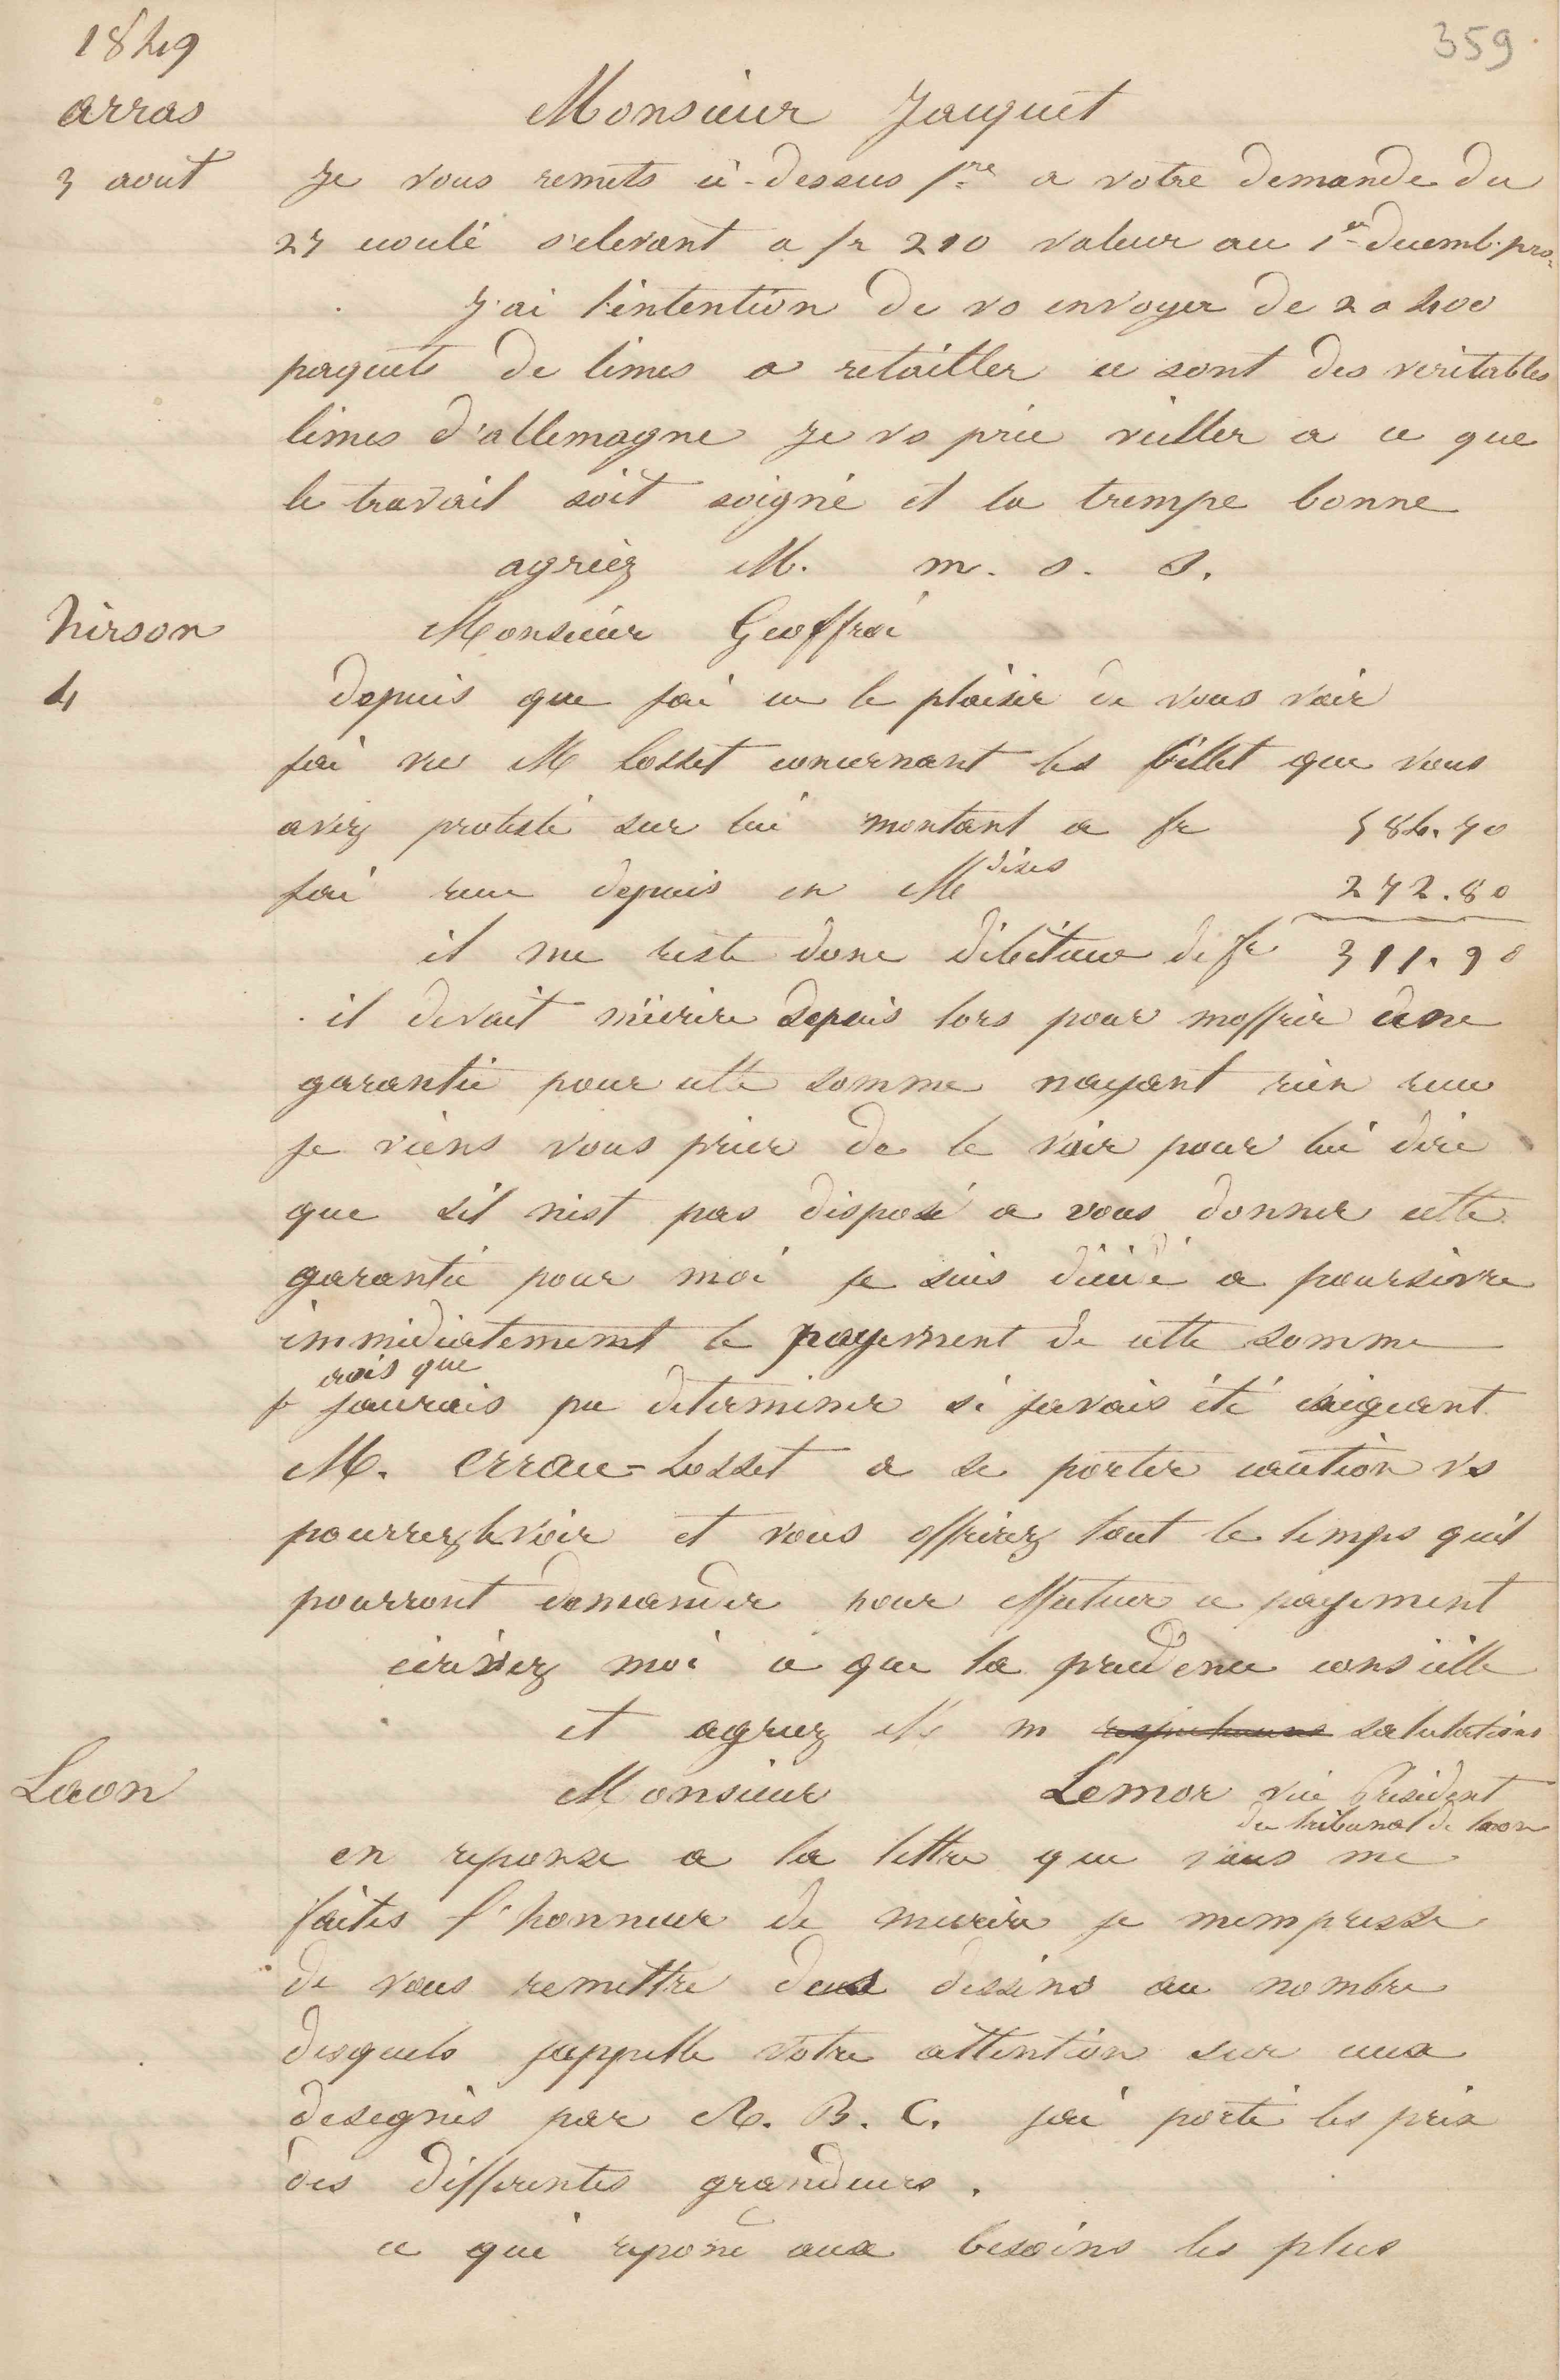 1849
359
arras
Monsieur Jacquet
3 aout
Je vous remets ci-dessus fre a votre demande du
27 ecoulé s'elevant a fr 210 valeur au 1er decemb. pro.
J'ai l'intention de vs envoyer de 2 a 400
paquets de limes a retailler ce sont des veritables
limes d'allemagne Je vs prie veiller a ce que
le travail soit soigné et la trempe bonne
agréez M. m. s. s.
hirson
Monsieur Geoffroi
4
depuis que jai eu le plaisir de vous voir
jai vu M Cosset concernant les billet que vous
avez protesté sur lui montant a fr 584.70
jai recu depuis en Mdises 272.80
il me reste donc débiteur de fr 311.90
il devait m'ecrire depuis lors pour moffrir une
garantie pour cette somme nayant rien recu
je viens vous prier de le voir pour lui dire
que sil nest pas disposé a vous donner cette
garantie pour moi je suis décidé a poursivre
immédiatement le payement de cette somme
crois que
je jaurais pu determiner si javais été exigeant
M. Errau-Cosset a se porter caution vs
pourrez le voir et vous offrirez tout le temps quil
pourront demander pour effectuer ce payement
ecrivez moi ce que la prudence conseille
et agreez Mr m salutations
Laon
Monsieur Lemor vice Président
du tribunal de laon
en reponse a la lettre que vous me
faites l'honneur de mecrire je mempresse
de vous remettre deux dessins au nombre
desquels jappelle votre attention sur ceux
desegnés par A. B. C. jai porté les prix
des differentes grandeurs.
ce qui repond aux besoins les plus